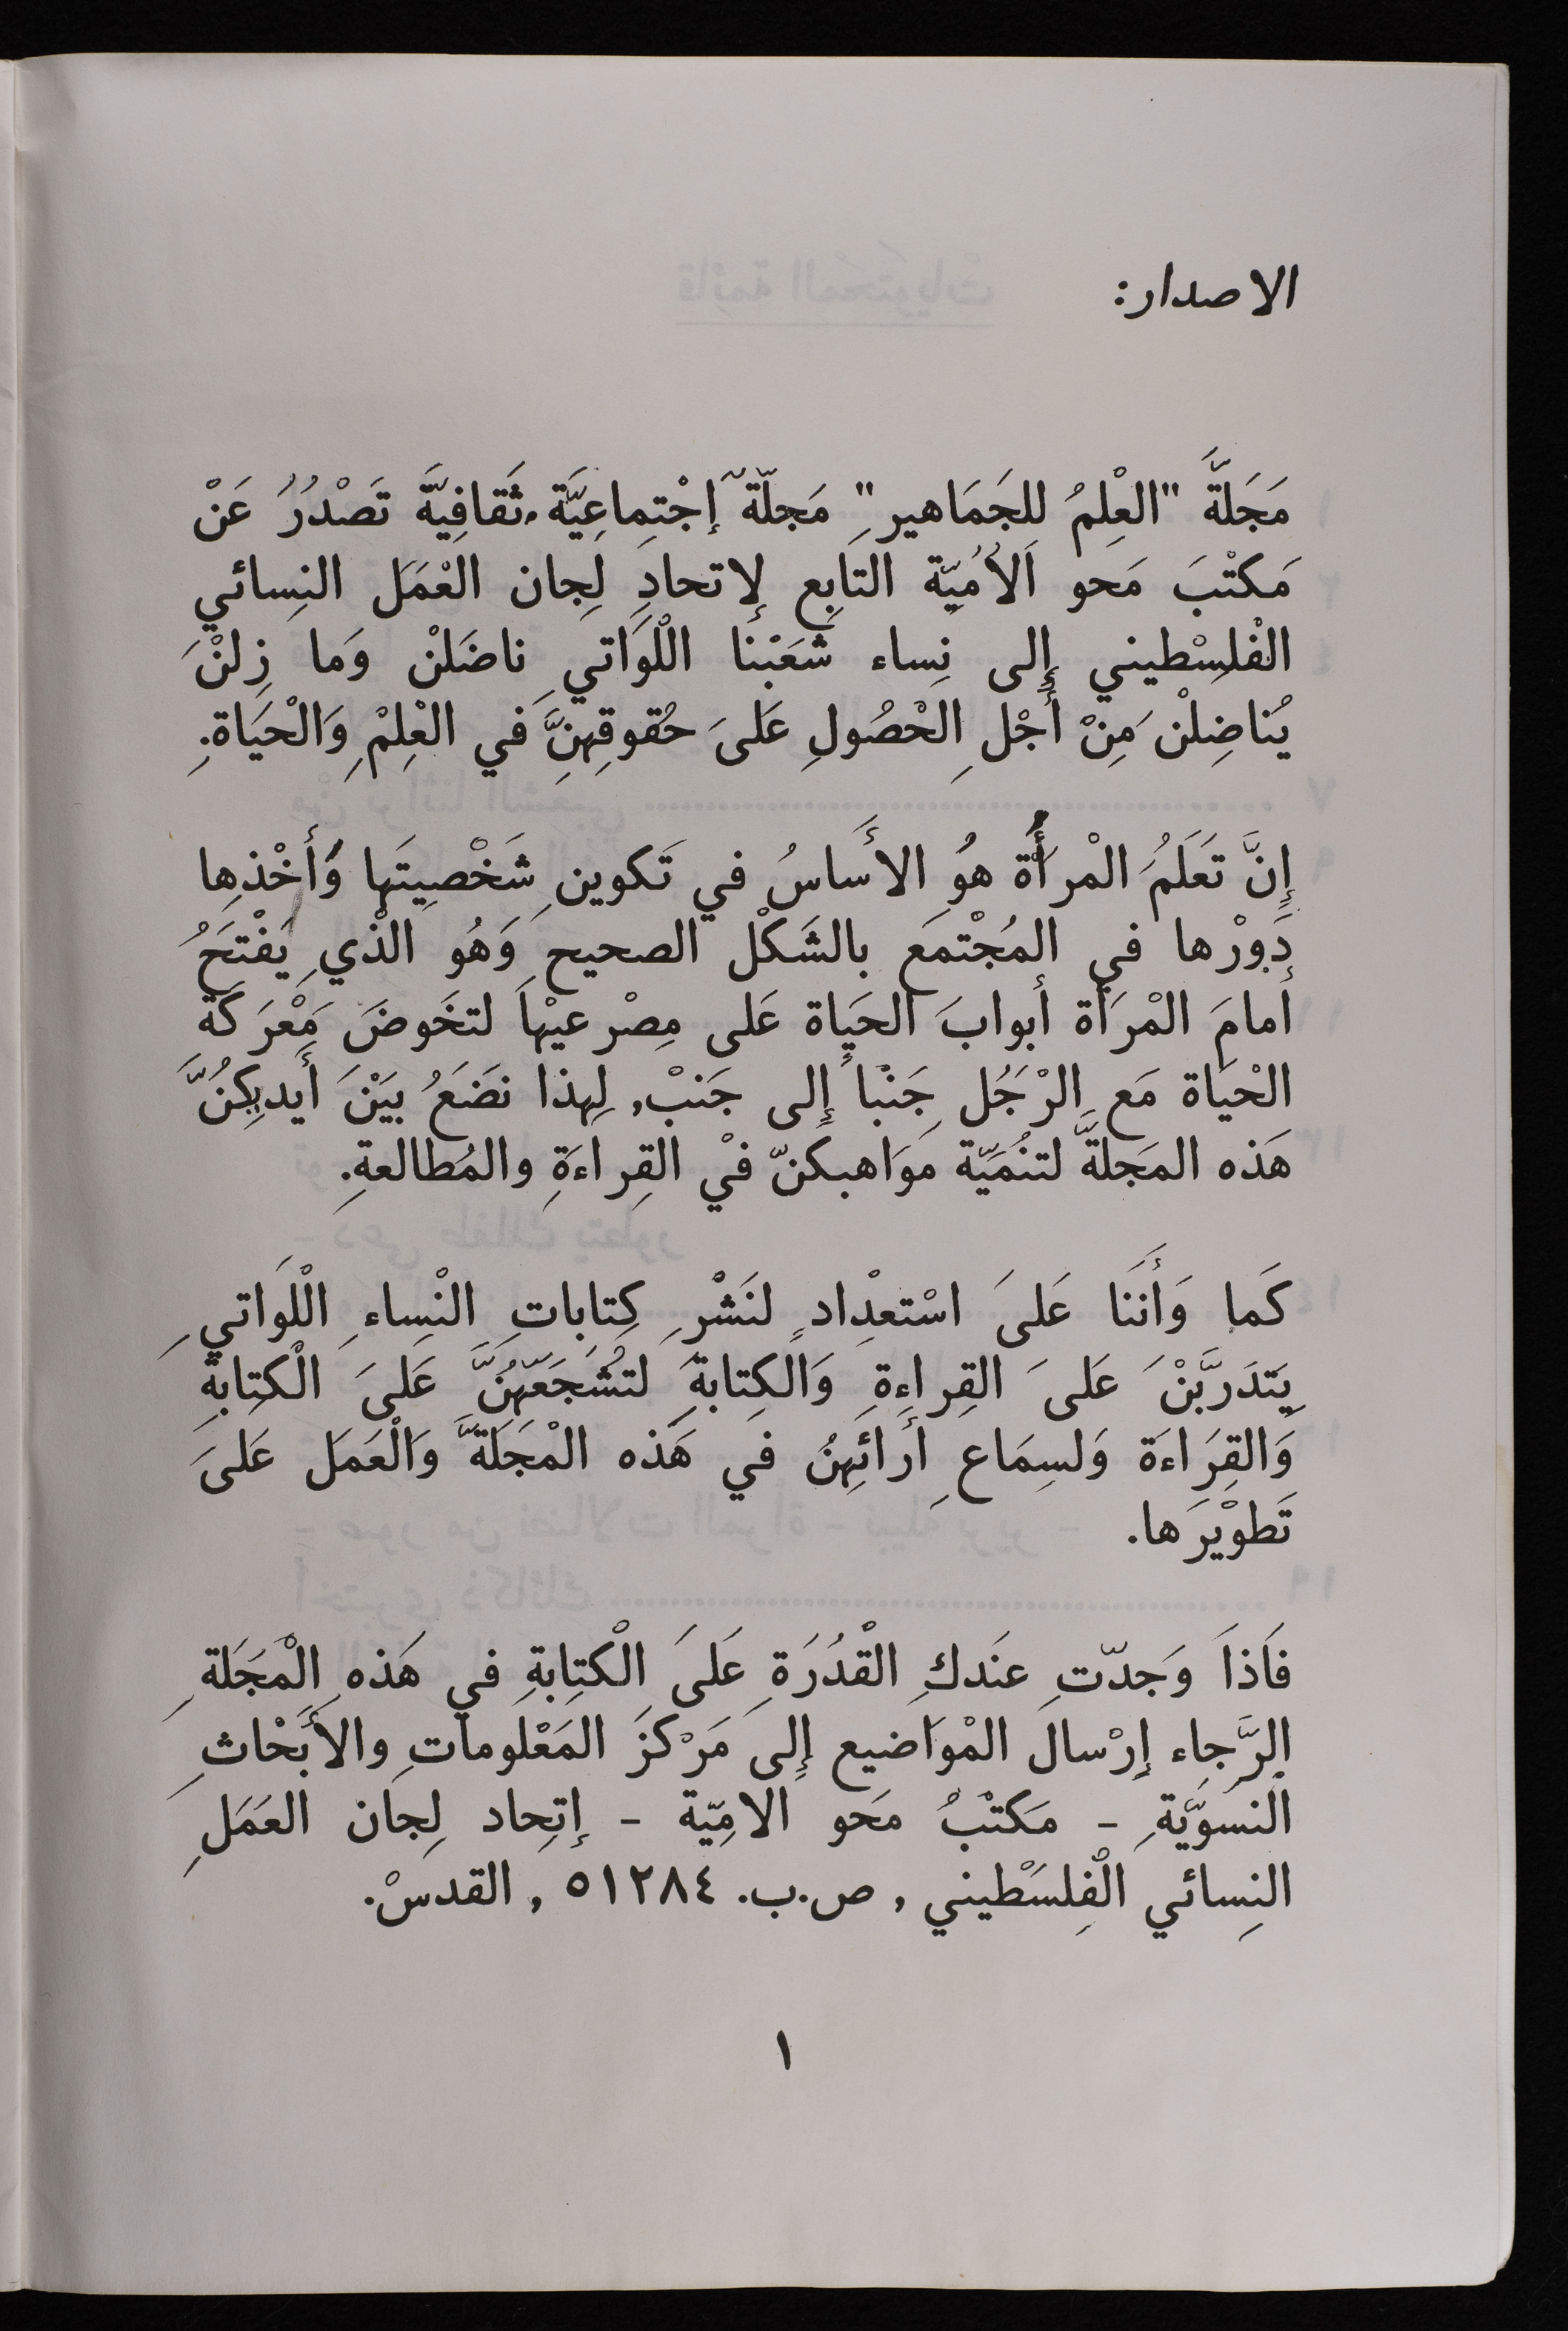 الاصدار:
مَجَلَّةَ "العْلِمُ لِلجَمَاهيرِ" مَجلّة إجْتِماعِيَّة، ثَقافِيَّة تَصْدُرُ عَنْ
مَكتْبَ مَحو اَلأُميّة التابِع لإتحادِ لِجان العْمَل النِسائي
الْفلِسْطيني إِلى نِساء شَعَبْنا اللْوَاتي ناضَلنْ وَما زِلنْ
يُناضِلْن مَنِْ أَجْلِ الحْصُولِ عَلىَ حُقوقِهنَِّ في العْلِمْ وَالْحَياة.
إِنَّ تَعَلَمُ المْرأَة هوَُ الأَساسُ في تَكوينِ شَخْصِيتَها وَأخْذِها
دَورْها في المُجْتمَع بالشَكلْ الصحيح وَهُو الذْي يَفْتَحُ
أمامَ المْرَأة أبوابَ الحَياة عَلى مِصْرعيْها لتخَوضَ مَعْرَكَة
الحْيَاة مَع الرْجَُل جَنْباً إِلى جَنبْ, لِهذا نضَعُ بيَْنَ أَيديكِنَُّ
هَذه المَجلةَّ لتنُمَيّة موَاهبكنّ فيْ القِراءَةِ والمُطالعةِ.
كَما وَأَننَا عَلىَ اسْتعدْادٍ لنَشْرِ كِتاباتِ النْساءِ اللْوَاتي
يِتَدَرَّبْنَ عَلىَ القِراءةِ وَالكِتابةَِ لتشُجَعّهُنَّ عَلىَ الْكتِابةِ
وَالقِرَاءَة وَلسِمَاعِ أَرائَهِنُ في هَذه المْجَلَةَّ وَالْعَمَل عَلىَ
تَطوْيْرَها.
فَاذاَ وَجدّتِ عندَكِ القْدُرَةِ عَلىَ الْكتِابةِ في هَذه المْجَلَةِ
الرَّجاء إِرْسالَ المْوَاضيع إِلىَ مَرْكزَ المَعْلوماتِ والأَبَحْاثِ
النسَوَيَّةِ - مَكتْبُ مَحو الامِيّة - إتِحاد لِجان العَمَلِ
النِسائي الْفِلسَْطيني , ص.ب. ٥١٢٨٤ , القدسْ.
١